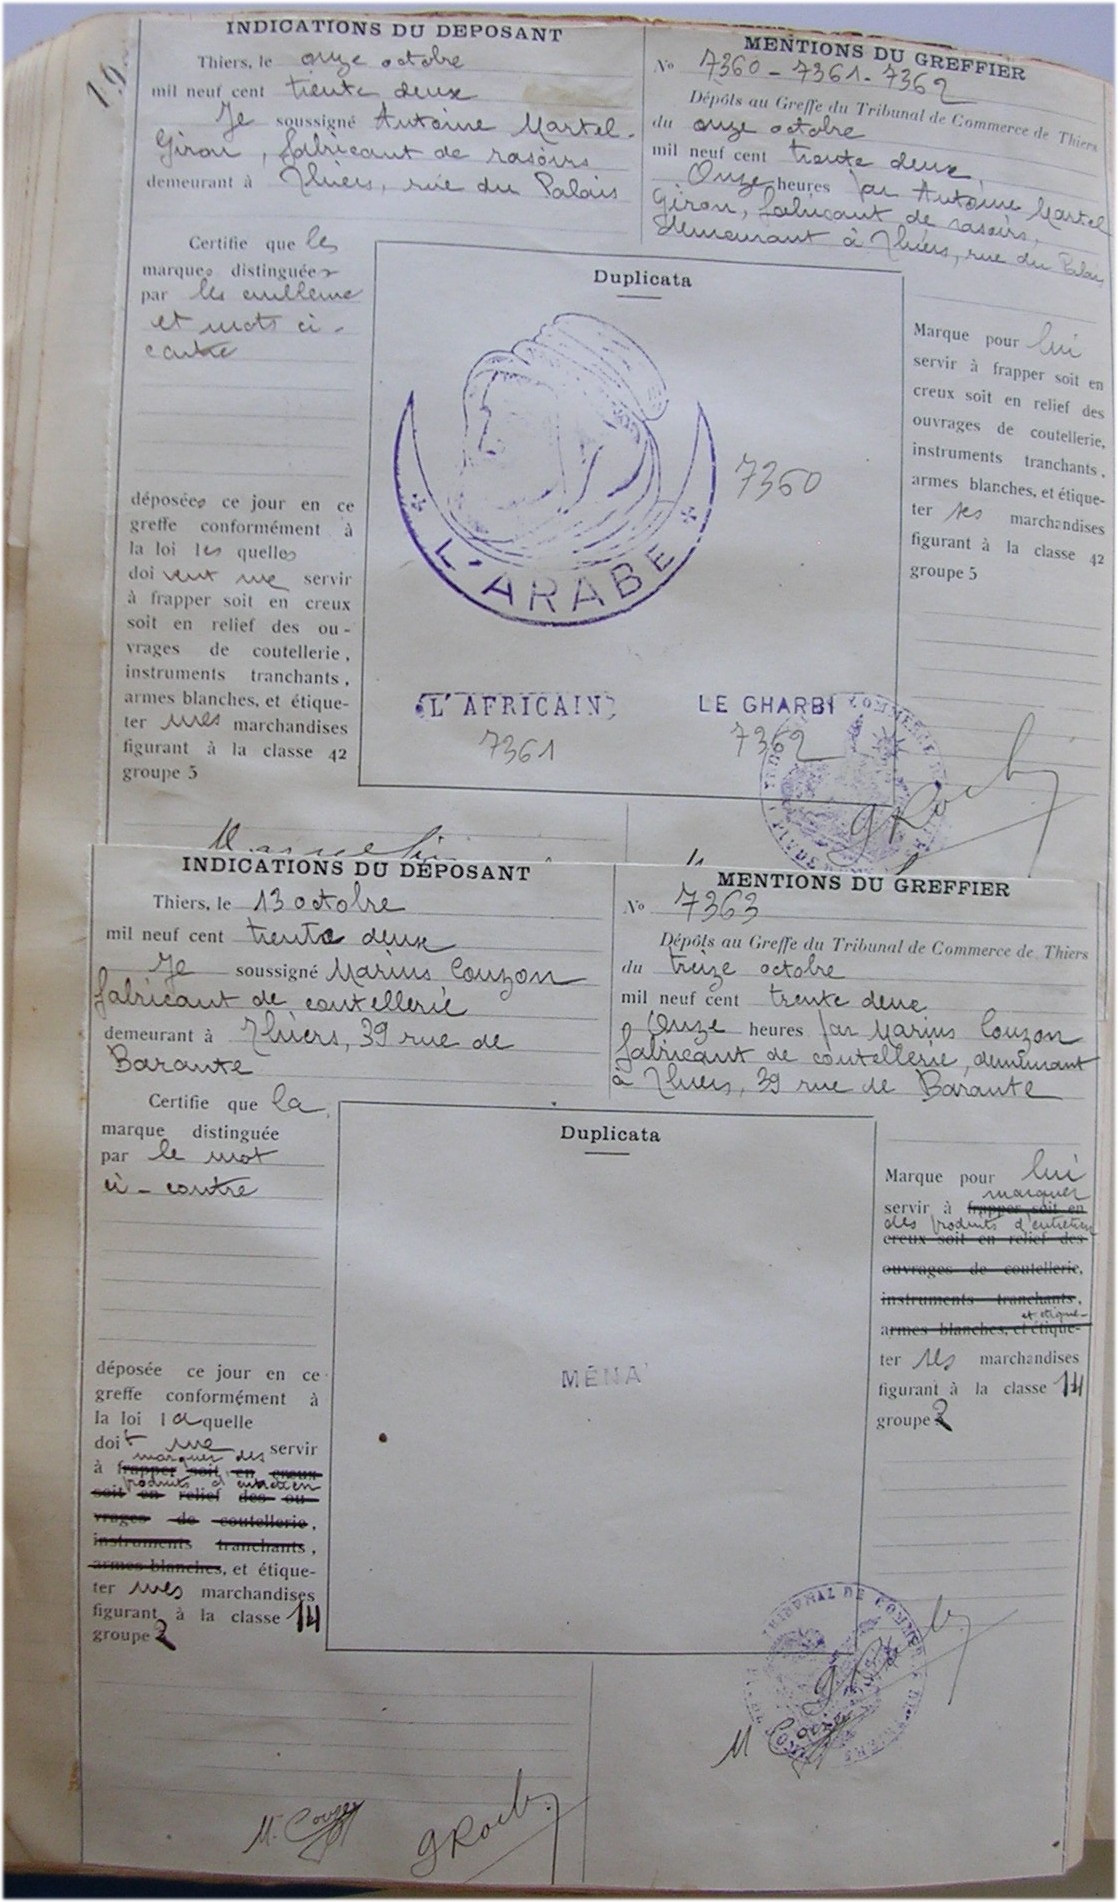 19
INDICATIONS DU DEPOSANT
Thiers, le onze octobre
mil neuf cent trente deux
Je soussigné Antoine Martel-
Giron, fabricant de rasoirs
demeurant à Thiers, rue du Palais
MENTIONS DU GREFFIER
No 7360 - 7361 - 7362
Dépôts au Greffe du Tribunal de Commerce de Thiers
du onze octobre
mil neuf cent trente deux,
Onze heures par Antoine Martel
Giron, fabricant de rasoirs,
demeurant à Thiers, rue du Palais
Certifie que les
marques distinguées
par les emblème
et mots ci-
contre
déposées ce jour en ce
greffe conformément à
la loi lesquelles
doivent me servir
à frapper soit en creux
soit en relief des ou-
vrages de coutellerie,
instruments tranchants,
armes blanches, et étique-
ter mes marchandises
figurant à la classe 42
groupe 5
Duplicata
L'ARABE
7360
L'AFRICAIN
7361
LE GHARBI
7362
Marque pour lui
servir à frapper soit en
creux soit en relief des
ouvrages de coutellerie,
instruments tranchants,
armes blanches, et étique-
ter ses marchandises
figurant à la classe 42
groupe 5
GRoch
INDICATIONS DU DÉPOSANT
Thiers, le 13 octobre
mil neuf cent trente deux
Je soussigné Marius Couzon
fabricant de coutellerie
demeurant à Thiers, 39 rue de
Barante
MENTIONS DU GREFFIER
No 7363
Dépôts au Greffe du Tribunal de Commerce de Thiers
du treize octobre
mil neuf cent trente deux
Onze heures par Marius Couzon
fabricant de coutellerie, demeurant
à Thiers, 39 rue de Barante
Certifie que la
marque distinguée
par le mot
ci-contre
déposée ce jour en ce
greffe conformément à
la loi laquelle
doit me servir
marquer des
à frapper soit en creux
produits d'entretien
soit en relief des ou-
vrages de coutellerie,
instruments tranchants,
armes blanches, et étique-
ter mes marchandises
figurant à la classe 14
groupe 2
Duplicata
MÉNA
Marque pour lui
marquer
servir à frapper soit en
des produits d'entretien
creux soit en relief des
ouvrages de coutellerie,
instruments tranchants,
et étique-
armes blanches, et étique-
ter ses marchandises
figurant à la classe 14
groupe 2
TRIBUNAL DE COMMERCE
M Couzon
M. Couzon
GRoch